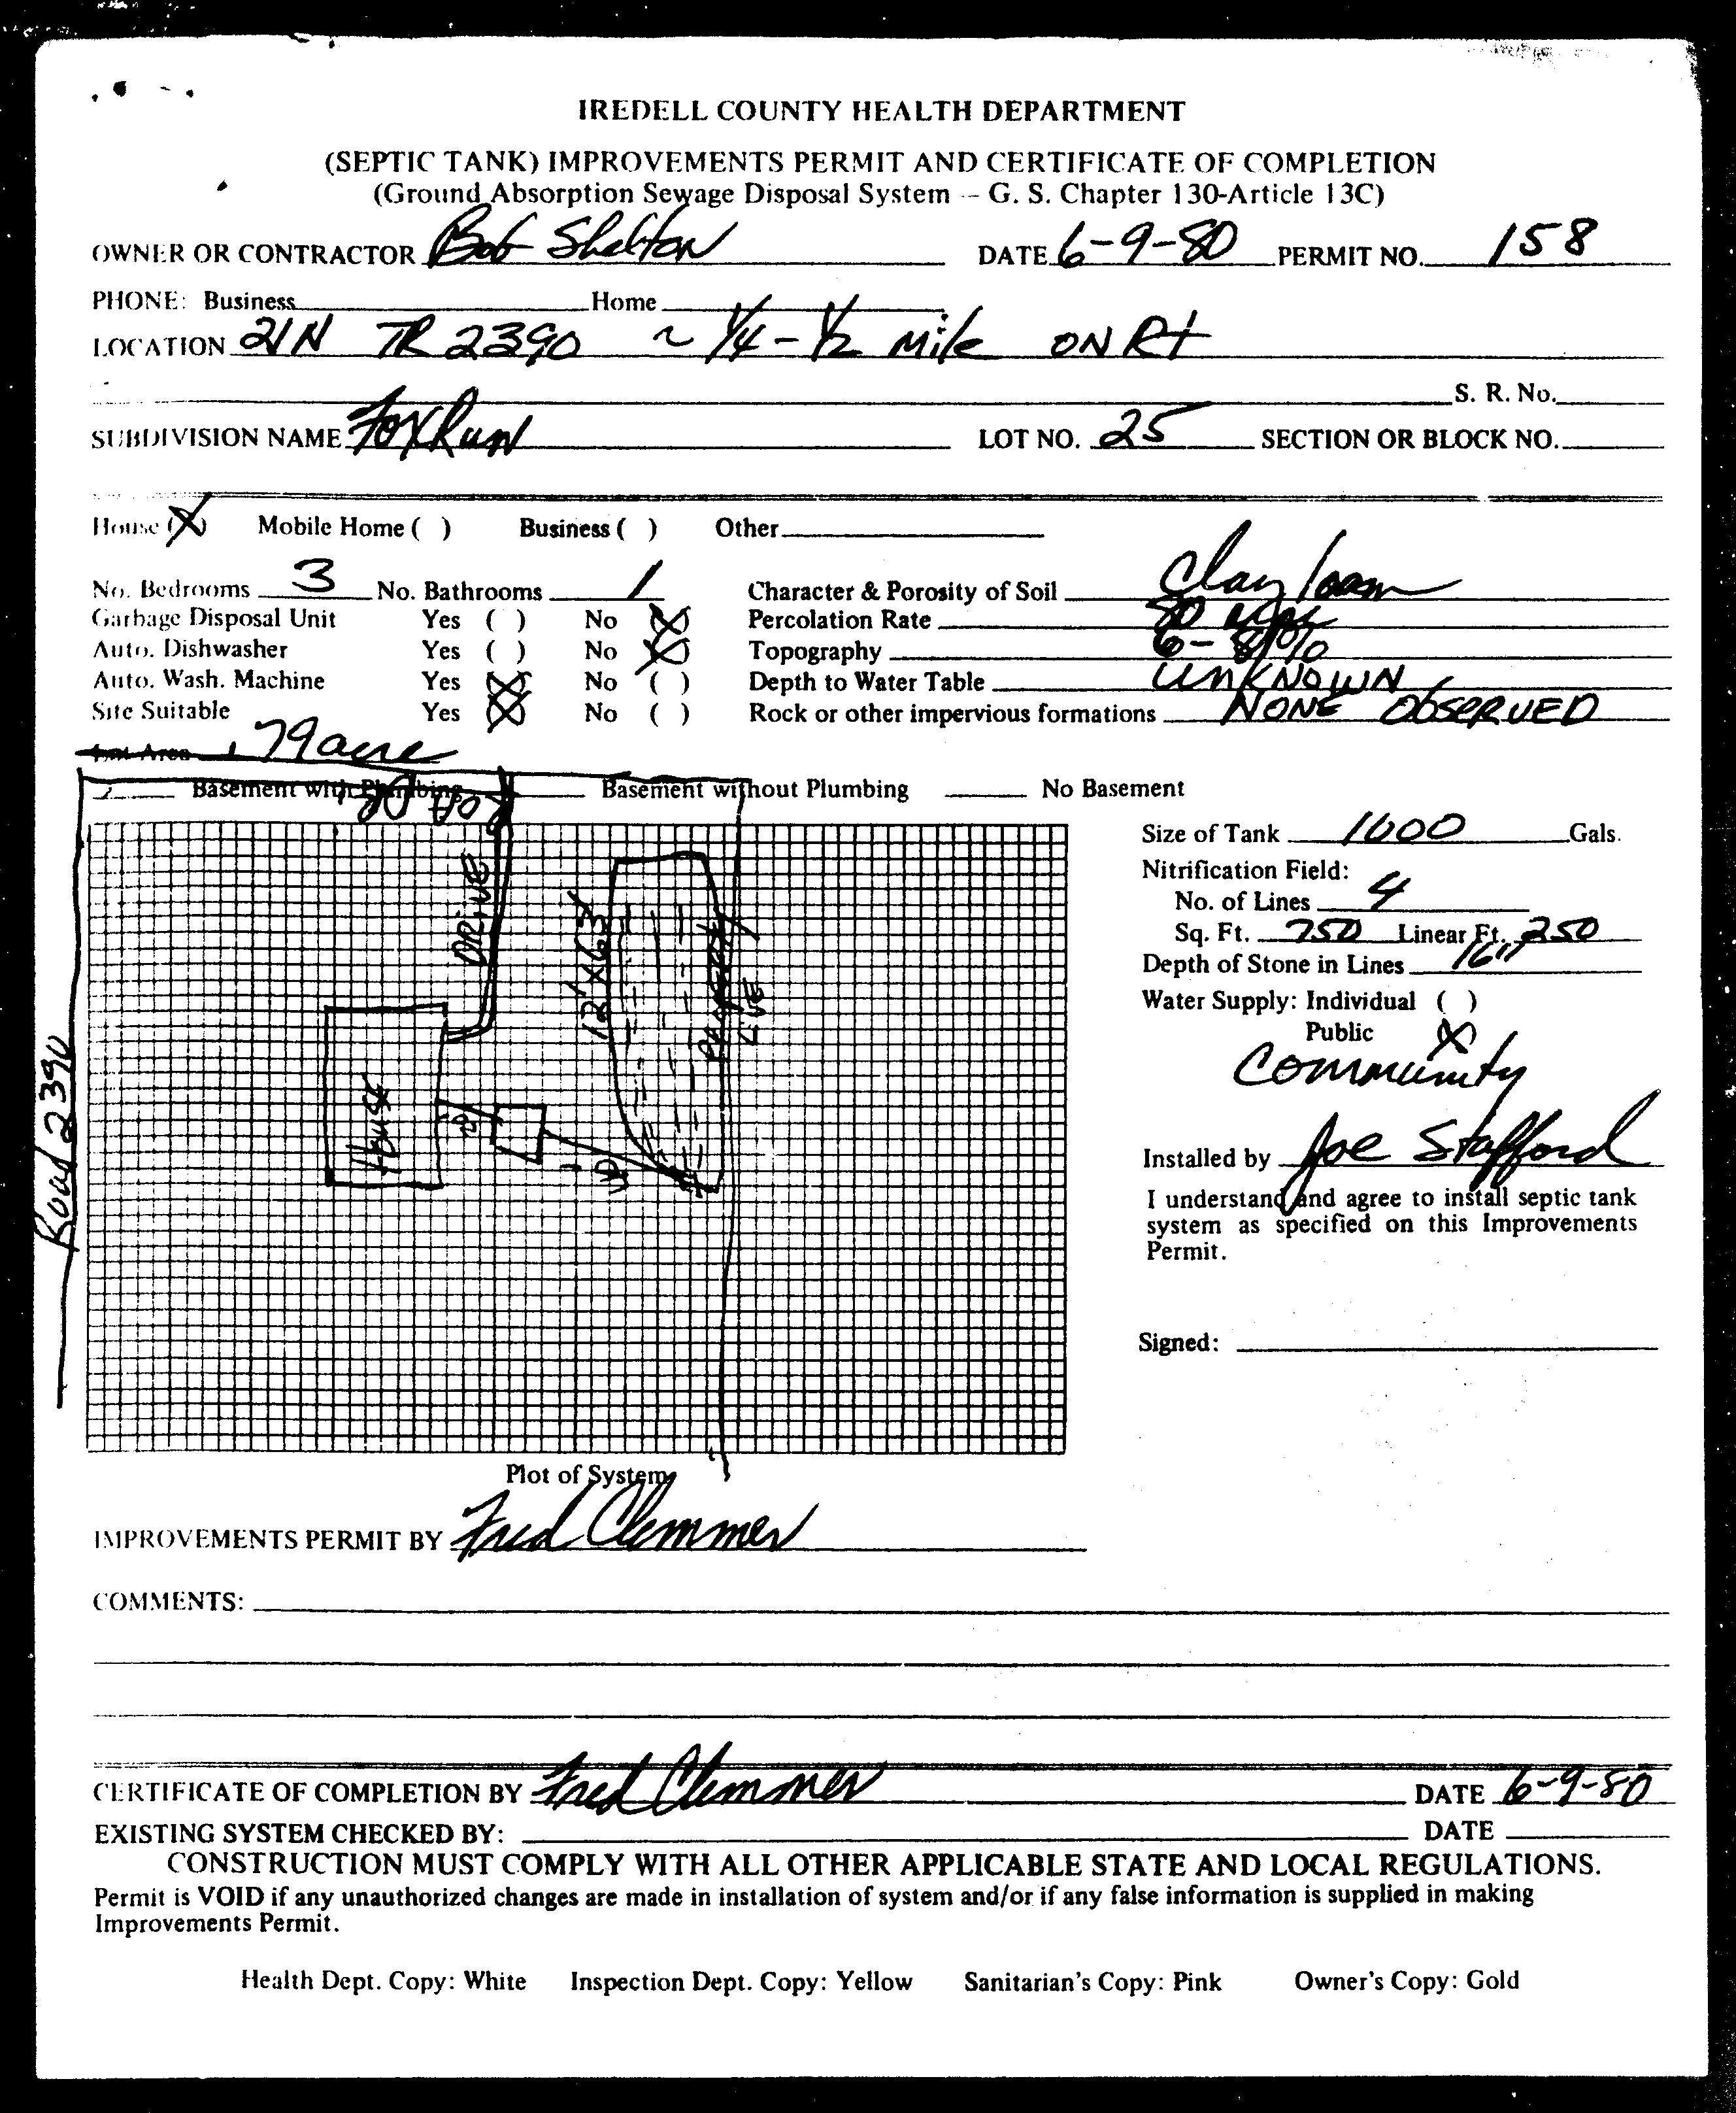 IREDELL COUNTY HEALTH DEPARTMENT
(SEPTIC TANK) IMPROVEMENTS PERMIT AND CERTIFICATE OF COMPLETION
(Ground Absorption Sewage Disposal System -- G. S. Chapter 130-Article 13C)
OWNER OR CONTRACTOR Bob Shelton DATE 6-9-80 PERMIT NO. 158
PHONE: Business Home
LOCATION 21N TR 2390 ~ 1/4 - 1/2 Mile ON Rt
S. R. No.
SUBDIVISION NAME Fox Run LOT NO. 25 SECTION OR BLOCK NO.
House (X) Mobile Home ( ) Business ( ) Other
No. Bedrooms 3 No. Bathrooms 1 Character & Porosity of Soil Clay loam
Garbage Disposal Unit Yes ( ) No (X) Percolation Rate 80
Auto. Dishwasher Yes ( ) No (X) Topography 6-8%
Auto. Wash. Machine Yes (X) No ( ) Depth to Water Table UNKNOWN
Site Suitable Yes (X) No ( ) Rock or other impervious formations NONE OBSERVED
Lot Area .79 acre
Basement with Plumbing Basement without Plumbing No Basement
Size of Tank 1000 Gals.
Nitrification Field:
No. of Lines 4
Sq. Ft. 750 Linear Ft. 250
Depth of Stone in Lines 16"
Water Supply: Individual ( )
Public (X)
Community
Installed by Joe Stafford
I understand and agree to install septic tank
system as specified on this Improvements
Permit.
Signed:
Road 2390
DRIVE
12' x 63'
PROPERTY
LINE
House
Plot of System
IMPROVEMENTS PERMIT BY Fred Clemmer
COMMENTS:
CERTIFICATE OF COMPLETION BY Fred Clemmer DATE 6-9-80
EXISTING SYSTEM CHECKED BY: DATE
CONSTRUCTION MUST COMPLY WITH ALL OTHER APPLICABLE STATE AND LOCAL REGULATIONS.
Permit is VOID if any unauthorized changes are made in installation of system and/or if any false information is supplied in making
Improvements Permit.
Health Dept. Copy: White Inspection Dept. Copy: Yellow Sanitarian's Copy: Pink Owner's Copy: Gold